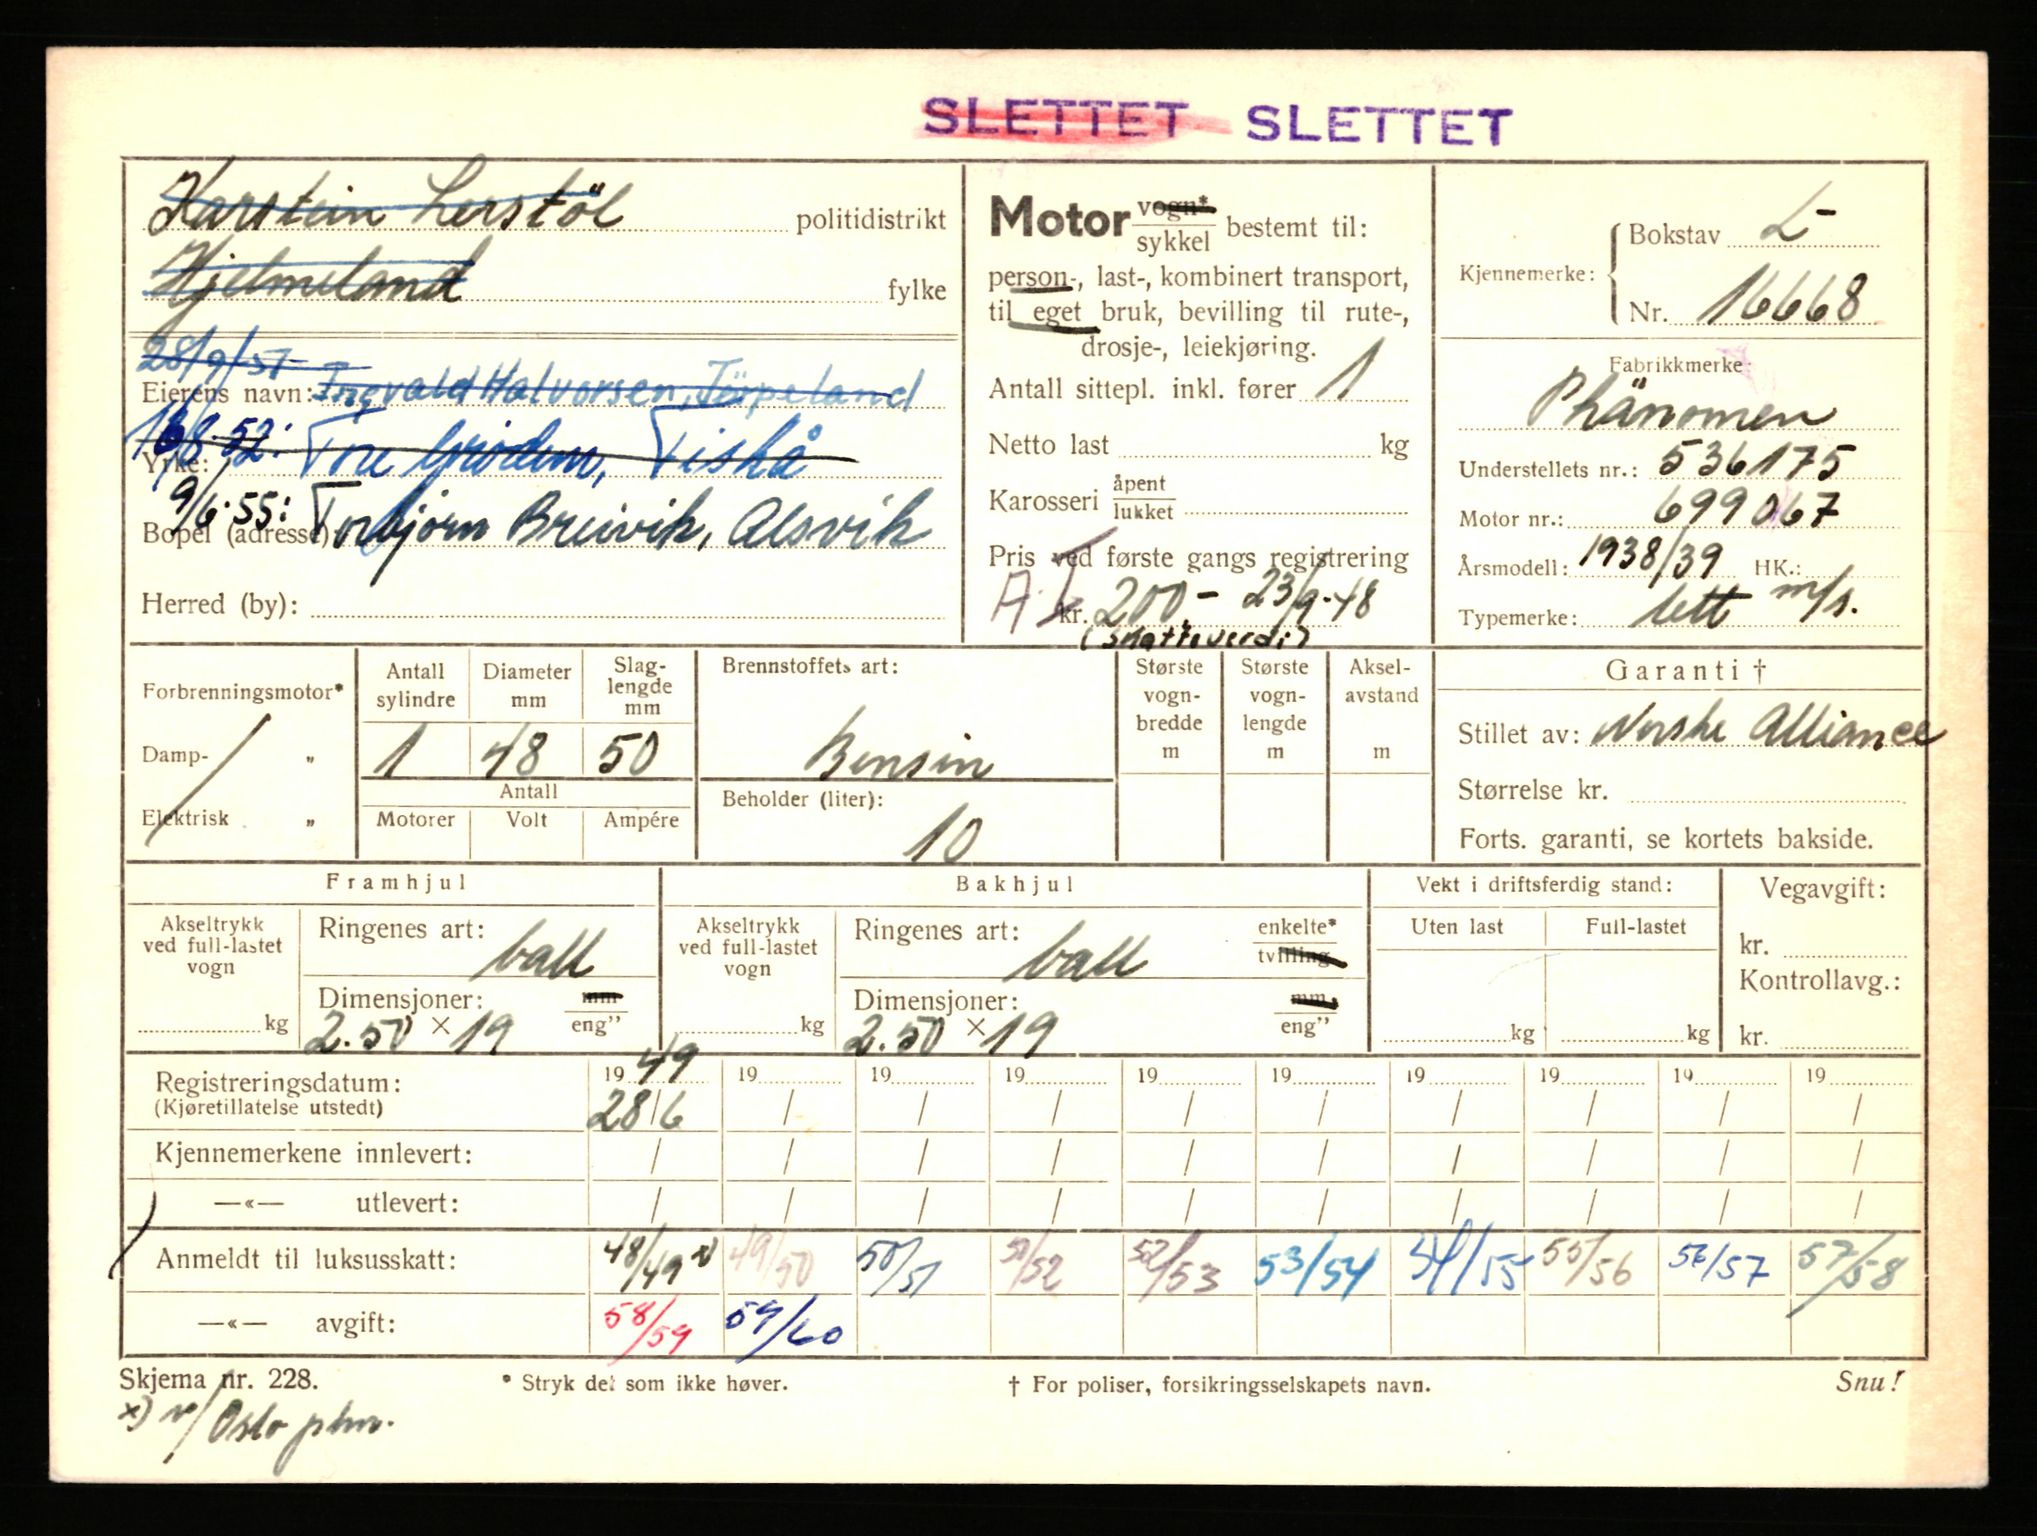 SLETTET SLETTET
Karstein Lerstöl politidistrikt
Hjelmeland fylke
28/9/51
Eierens navn: Ingvald Halvorsen, Jörpeland
18/8.52: Tore Grödem, Fiskå
Yrke:
9/6.55: Torbjörn Breivik, Alsvik
Bopel (adresse)
Herred (by):
Motor vogn*/sykkel bestemt til:
person-, last-, kombinert transport,
til eget bruk, bevilling til rute-,
drosje-, leiekjøring.
Antall sittepl. inkl. fører 1
Netto last kg
Karosseri åpent/lukket
Pris ved første gangs registrering
kr. 200.- 23/9.48
(skatteverdi)
Kjennemerke: Bokstav L-
Nr. 16668
Fabrikkmerke:
Phänomen
Understellets nr.: 536175
Motor nr.: 699067
Årsmodell: 1938/39 HK.:
Typemerke: lett m/s.
Forbrenningsmotor*
Damp- "
Elektrisk "
Antall sylindre Diameter mm Slag-lengde mm
1 48 50
Antall
Motorer Volt Ampére
Brennstoffets art:
Bensin
Beholder (liter):
10
Største vogn-bredde m
Største vogn-lengde m
Aksel-avstand m
Garanti †
Stillet av: Norske Alliance
Størrelse kr.
Forts. garanti, se kortets bakside.
Framhjul
Akseltrykk ved full-lastet vogn
kg
Ringenes art: ball
Dimensjoner: mm
2.50 × 19 eng"
Bakhjul
Akseltrykk ved full-lastet vogn
kg
Ringenes art: ball enkelte*
tvilling
Dimensjoner: mm.
2.50 × 19 eng"
Vekt i driftsferdig stand:
Uten last Full-lastet
kg kg
Vegavgift:
kr.
Kontrollavg.:
kr.
Registreringsdatum: 1949 19 19 19 19 19 19 19 19 19
(Kjøretillatelse utstedt) 28/6 / / / / / / / / /
Kjennemerkene innlevert: / / / / / / / / / /
—«— utlevert: / / / / / / / / / /
Anmeldt til luksusskatt: 48/49 x) 49/50 50/51 51/52 52/53 53/54 54/55 55/56 56/57 57/58
—«— avgift: 58/59 59/60
Skjema nr. 228. * Stryk det som ikke høver. † For poliser, forsikringsselskapets navn. Snu!
x) v/ Oslo pkm.